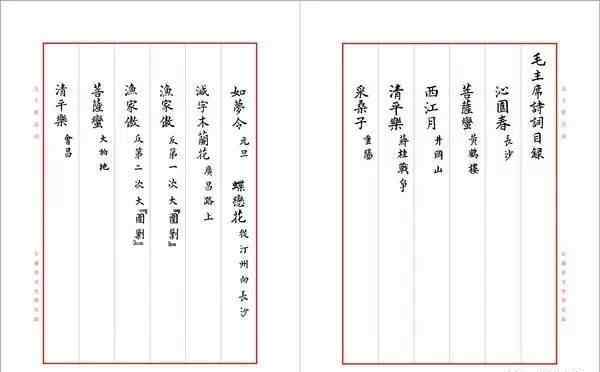 毛主席詩詞目録
沁園春 長沙
菩薩蠻 黃鶴樓
西江月 井岡山
清平樂 蔣桂戰爭
采桑子 重陽
如夢令 元旦 蝶戀花 從汀州向長沙
減字木蘭花 廣昌路上
漁家傲 反第一次大『圍剿』
漁家傲 反第二次大『圍剿』
菩薩蠻 大柏地
清平樂 會昌